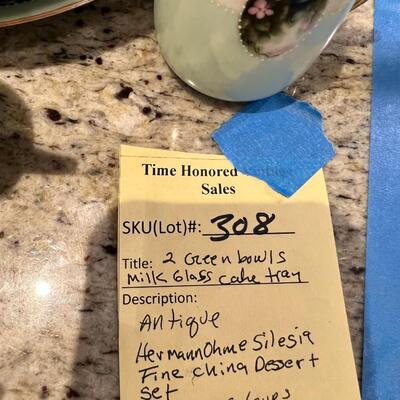 Time Honored
Sales
SKU(Lot)#: 308
Title: 2 Green bowls
Milk Glass cake tray
Description:
Antique
Hermann Ohme Silesia
Fine china Dessert
set